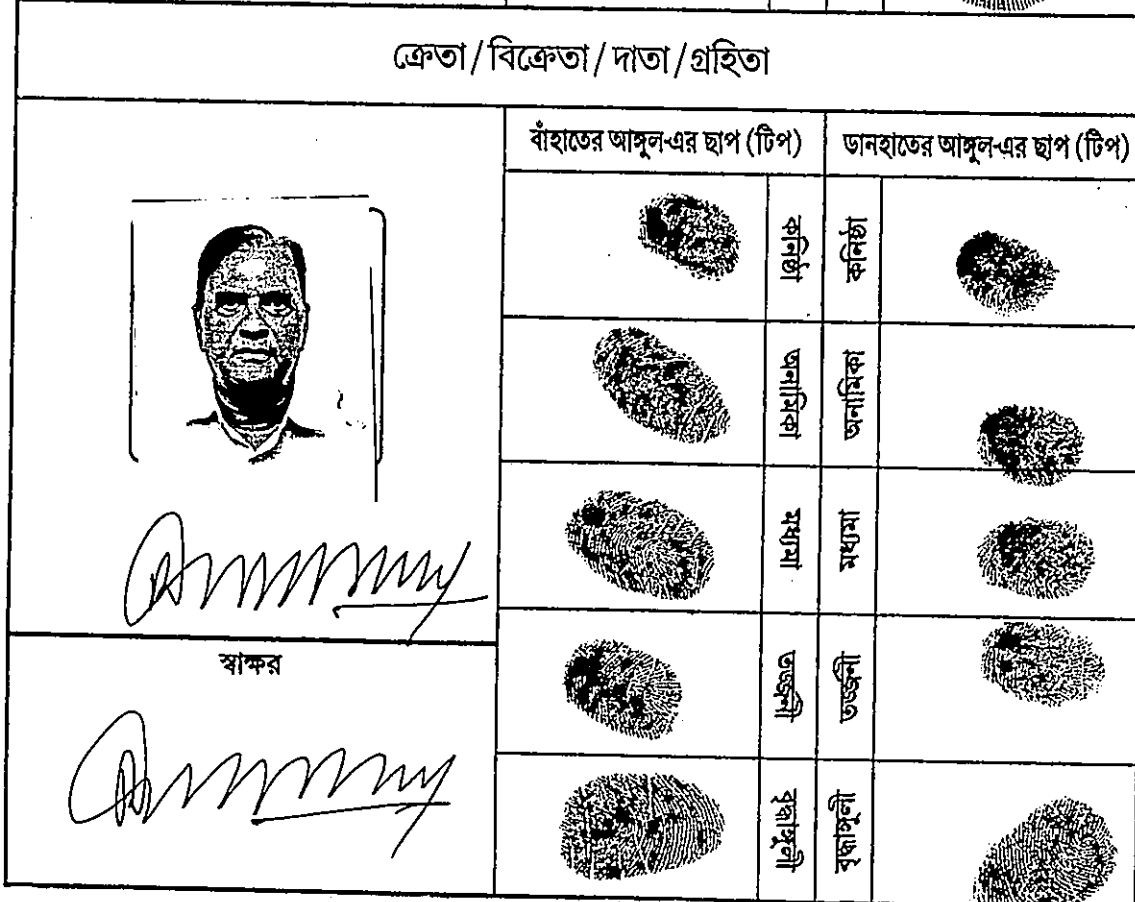 ক্রেতা/বিক্রেতা/দাতা/গ্রহিতা
বাঁহাতের আঙ্গুল-এর ছাপ (টিপ)
ডানহাতের আঙ্গুল-এর ছাপ (টিপ)
কনিষ্ঠা
কনিষ্ঠা
অনামিকা
অনামিকা
মধ্যমা
মধ্যমা
তর্জ্জনী
তর্জ্জনী
বৃদ্ধাঙ্গুলী
বৃদ্ধাঙ্গুলী
স্বাক্ষর